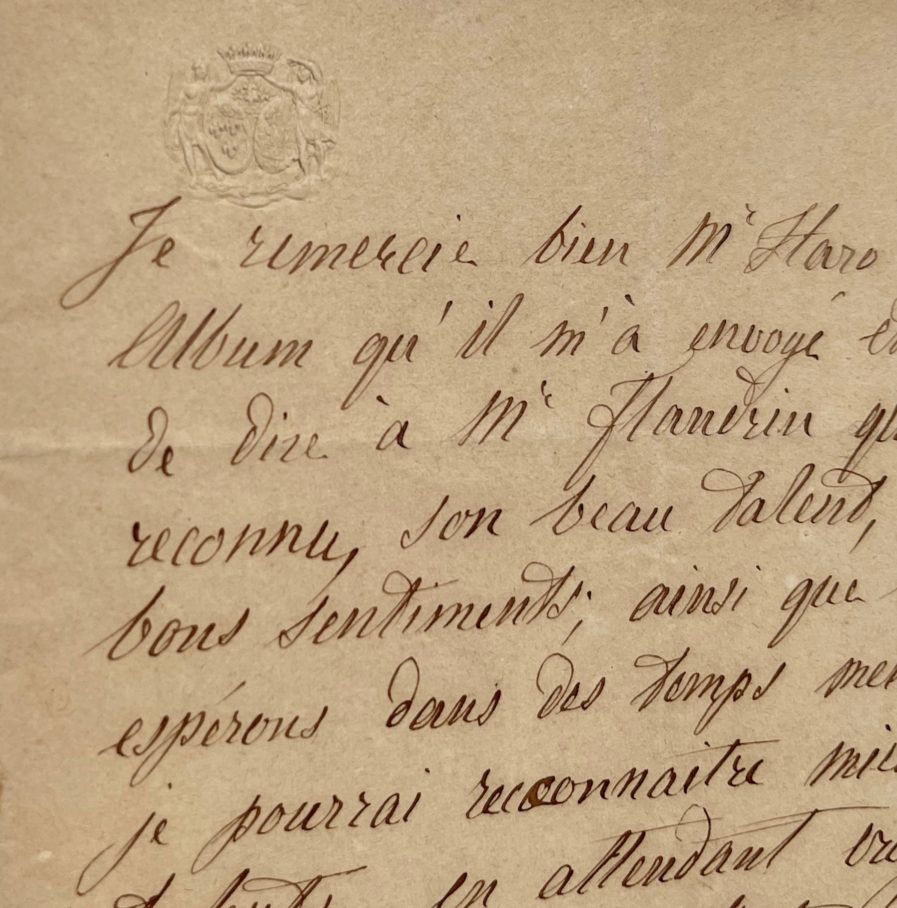 Je remercie bien Mr Haro
Album qu'il m'à envoyé
de dire à Mr flandrin
reconnu, son beau talent,
bons sentiments; ainsi que
espérons dans des temps
je pourrai reconnaitre
en attendant